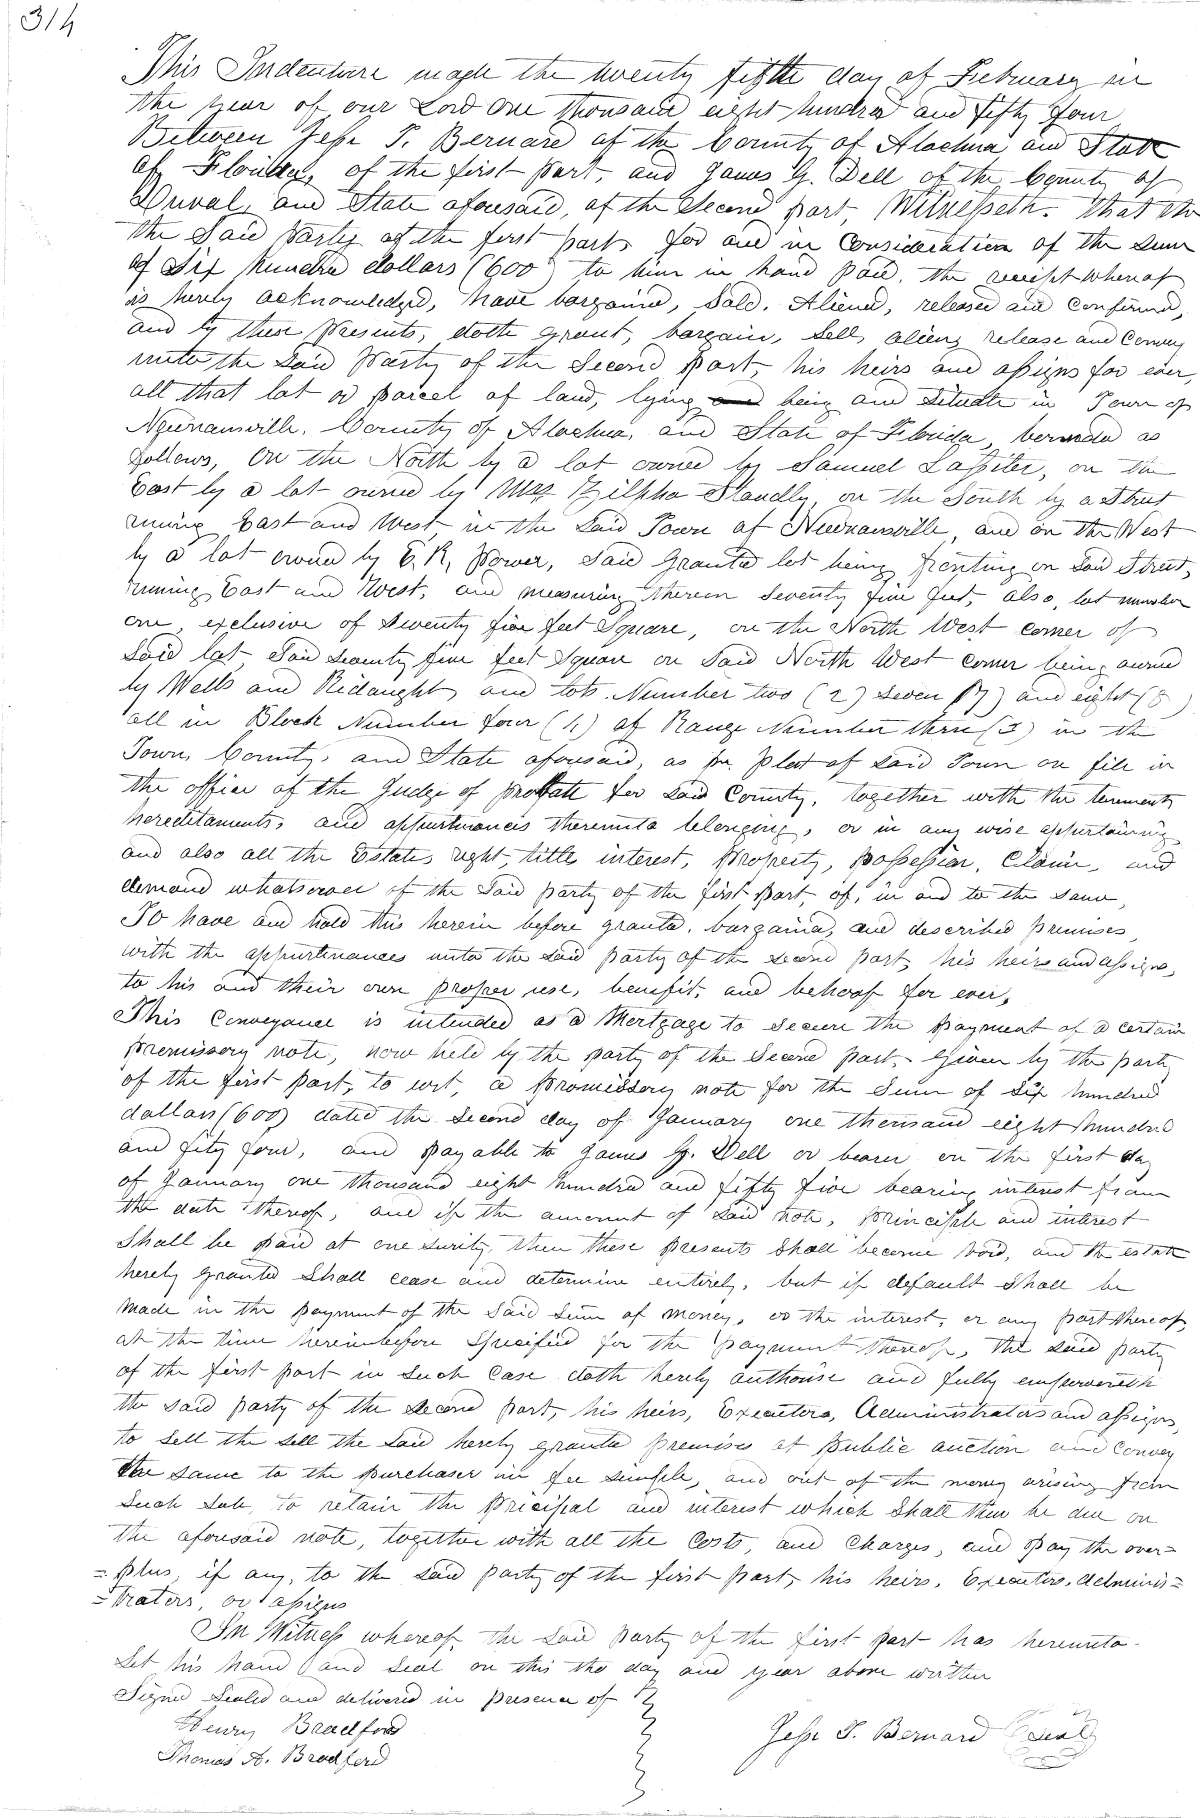 314
This Indenture made the twenty fifth day of February in
the year of our Lord one thousand eight hundred and fifty four
Between Jesse T. Bernard of the County of Alachua and State
of Florida, of the first part, and James G. Dell of the County of
Duval, and State aforesaid, of the Second part, Witnesseth. that the
the Said party of the first part, for and in Consideration of the sum
of Six hundred dollars (600) to him in hand paid, the receipt whereof
is hereby acknowledged, have bargained, Sold. Aliened, released and Confirmed,
and by these presents, doth grant, bargain, Sell, alien, release and Convey
unto the Said Party of the Second part, his heirs and assigns for ever,
all that lot or parcel of land, lying and being and Situate in Town of
Newnansville, County of Alachua, and State of Florida, bounded as
follows, On the North by a lot owned by Samuel Lassiter, on the
East by a lot owned by Mrs Zilpha Standly, on the South by a Street
runing East and West, in the Said Town of Newnansville, and on the West
by a lot owned by E. R. Power, Said granted lot being fronting on Said Street,
running East and West, and measuring thereon Seventy five feet, also, lot number
one, exclusive of Seventy five feet Square, on the North West corner of
Said lot, Said Seventy five feet Square on Said North West Corner being owned
by Wells and Ridaught, and lots Number two (2) Seven (7) and eight (8)
all in Block Number four (4) of Range Number three (3) in the
Town, County, and State aforesaid, as pr. Plat of Said Town on file in
the office of the Judge of probate for Said County, together with the tenements
hereditaments, and appurtinances thereunto belonging, or in any wise appurtaining
and also all the Estate, right, title interest, property, possession, Claim, and
demand whatsoever of the Said party of the first part, of, in and to the Same,
To have and hold this herein before granted, bargained, and described premises,
with the appurtinances unto the Said party of the Second part, his heirs and assigns,
to his and their own proper use, benefit, and behoof for ever,
This Conveyance is intended as a Mortgage to secure the payment of a certain
promissory note, now held by the party of the Second part, given by the party
of the first part, to wit, a promissory note for the Sum of Six hundred
dollars (600) dated the Second day of January one thousand eight hundred
and fity four, and payable to James G. Dell or bearer on the first day
of January one thousand eight hundred and fifty five bearing interest from
the date thereof, and if the amount of Said note, principle and interest
Shall be paid at one surity, then these presents Shall become Void, and the estate
hereby granted Shall cease and determine entirely, but if default Shall be
made in the payment of the Said Sum of money, or the interest, or any part thereof,
at the time hereinbefore Specified for the payment thereof, the Said party
of the first part in Such Case doth hereby authorise and fully empowereth
the said party of the second part, his heirs, Executors, Administrators and assigns,
to sell the sell the Said hereby granted premises at public auction and Convey
the same to the purchaser in fee simple, and out of the money arising from
Such sale, to retain the pricipal and interest which Shall then be due on
the aforesaid note, together with all the Costs, and Charges, and pay the over=
=plus, if any, to the Said party of the first part, his heirs, Executors, Adminis=
=trators, or assigns
In Witness whereof, the Said party of the first part has hereunto
Set his hand and Seal on this the day and year above written
Signed Sealed and delivered in presence of
Henry Bradford
Thomas A. Bradford
Jesse T. Bernard Seal